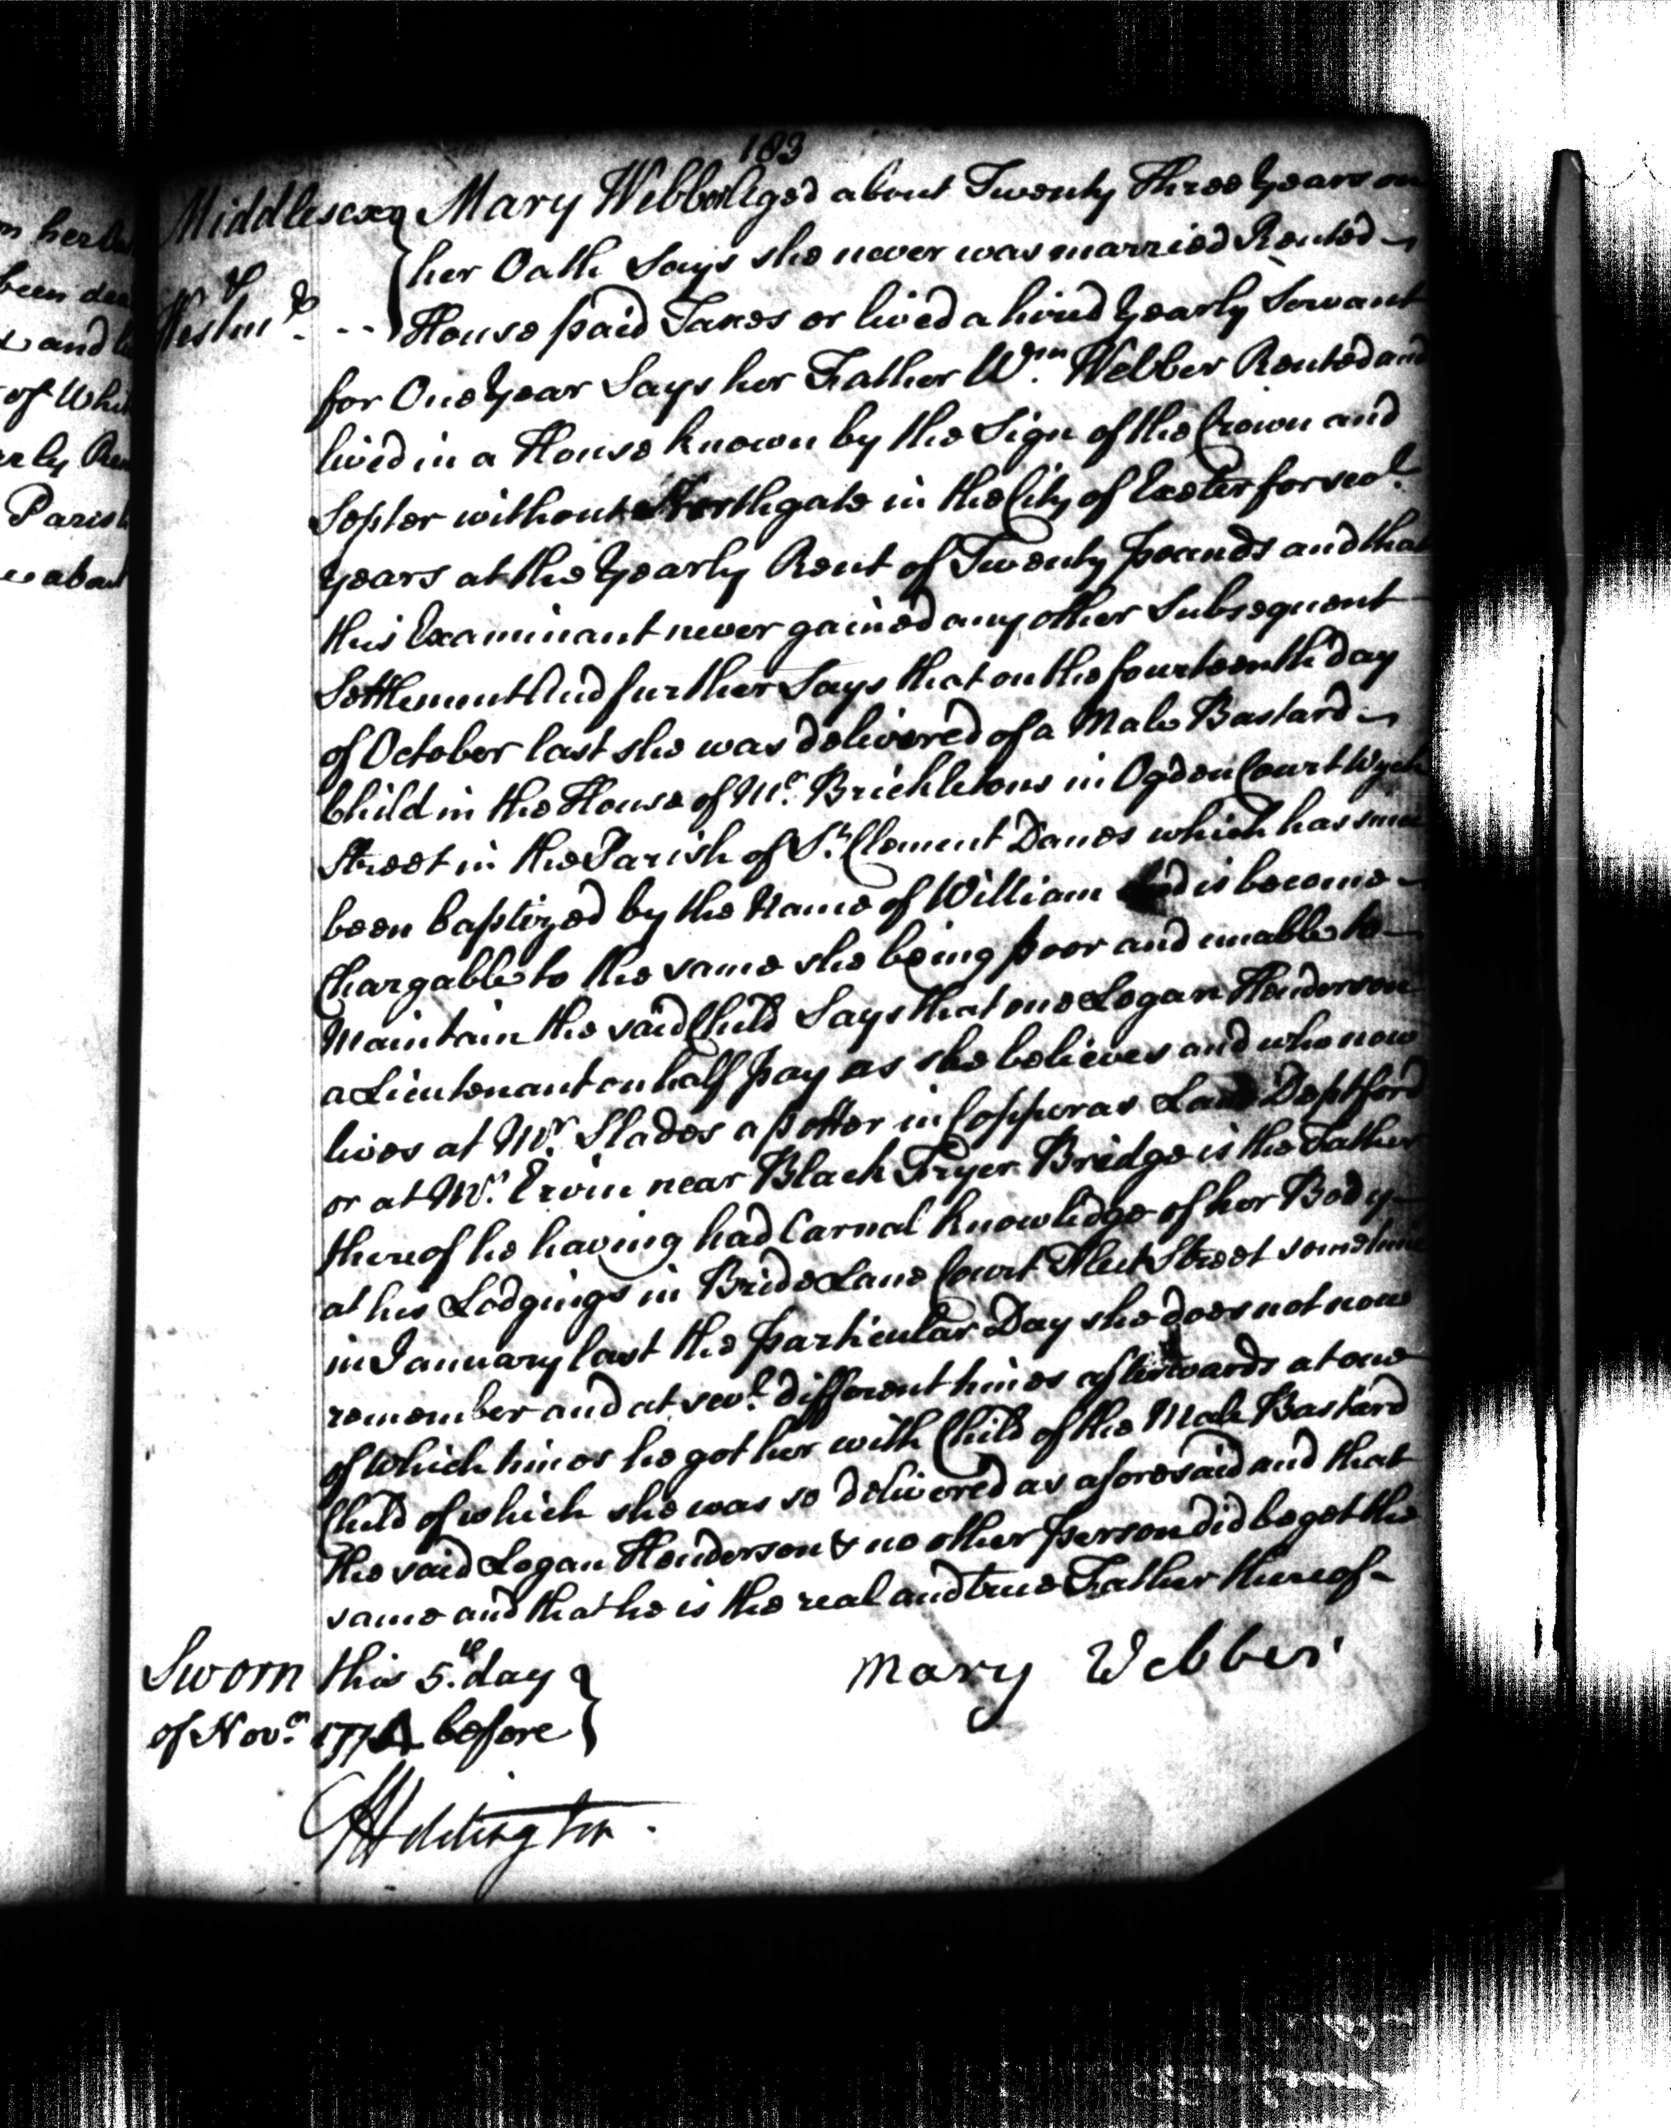 183
Middlesex Mary Webber Aged about Twenty Three Years on
her Oath Says she never was married Rented
& Westmr. House paid Taxes or lived a hired Yearly Servant
for One Year Says her Father Wm. Webber Rented and
lived in a House known by the Sign of the Crown and
Septer without Northgate in the City of Exeter for sevl.
Years at the Yearly Rent of Twenty pounds and that
this Examinant never gained any other Subsequent
Settlement And further Says that on the fourteenth day
of October last she was delivered of a Male Bastard
Child in the House of Mr. Brickletons in Ogden Court Wych
Street in the Parish of St. Clement Danes which has since
been baptized by the Name of William and is become
Chargable to the same she being poor and unable to
Maintain the said Child Says that one Logan Henderson
a Lieutenant on half pay as she believes and who now
lives at Mr. Slades a potter in Copperas Lane Deptford
or at Mr. Ervin near Black Fryer Bridge is the Father
thereof he having had Carnal knowledge of her Body
at his Lodgings in Bride Lane Court Fleet Street sometime
in January last the particular Day she does not now
remember and at sevl. different times afterwards at one
of Which times he got her with Child of the Male Bastard
Child of which she was so delivered as aforesaid and that
the said Logan Henderson & no other person did beget the
same and that he is the real and true Father thereof
Sworn this 5th. day Mary Webber
of Novr. 1774 before